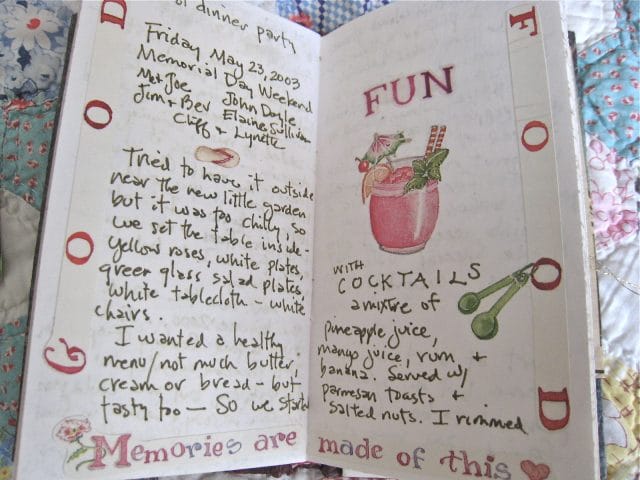 of dinner party
Friday May 23, 2003
Memorial Day Weekend
Met Joe John Doyle
Jim & Bev Elaine Sullivan
Cliff & Lynette
Tried to have it outside
near the new little garden
but it was too chilly, so
we set the table inside-
yellow roses, white plates,
green glass salad plates,
white tablecloth - white
chairs.
I wanted a healthy
menu/not much butter,
cream or bread - but
tasty too - So we started
GOOD
FUN
WITH
COCKTAILS
a mixture of
pineapple juice,
mango juice, rum, +
banana. Served w/
parmesan toasts +
salted nuts. I rimmed
FOOD
Memories are made of this